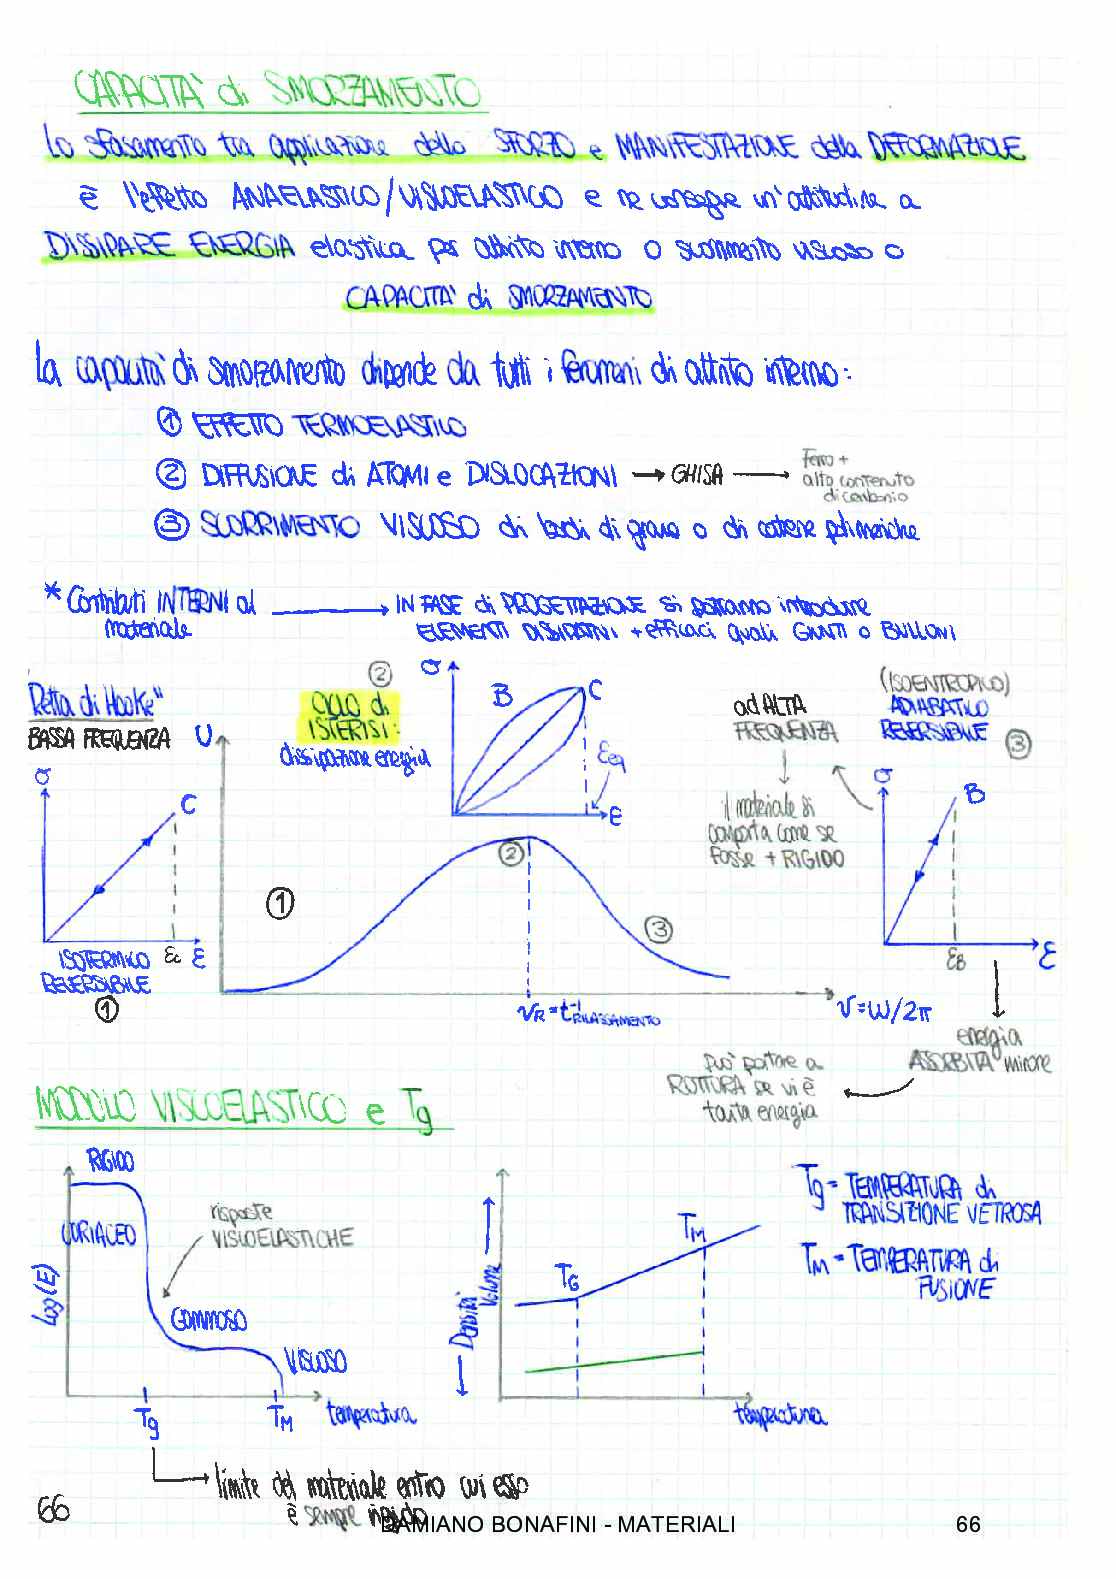 CAPACITA' di SMORZAMENTO
Lo sfasamento tra applicazione dello SFORZO e MANIFESTAZIONE della DEFORMAZIONE
è l'effetto ANAELASTICO/VISCOELASTICO e ne consegue un'attitudine a
DISSIPARE ENERGIA elastica per attrito interno o scorrimento viscoso o
CAPACITA' di SMORZAMENTO
La capacità di smorzamento dipende da tutti i fenomeni di attrito interno:
① EFFETTO TERMOELASTICO
② DIFFUSIONE di ATOMI e DISLOCAZIONI → GHISA → Ferro +
alto contenuto
di carbonio
③ SCORRIMENTO VISCOSO di bordi di grano o di catene polimeriche
* Contributi INTERNI al → IN FASE di PROGETTAZIONE si potranno introdurre
materiale ELEMENTI DISSIPATIVI + efficaci quali GIUNTI o BULLONI
Retta di Hooke"
BASSA FREQUENZA
σ
C
εc ε
ISOTERMICO
REVERSIBILE
①
U
CICLO di
ISTERISI:
dissipazione energia
②
σ
B C
εeq
ε
①
②
③
νR = t⁻¹RILASSAMENTO
ν = ω/2π
ad ALTA
FREQUENZA
il materiale si
comporta come se
fosse + RIGIDO
(ISOENTROPICO)
ADIABATICO
REVERSIBILE ③
σ
B
εB ε
energia
ASSORBITA minore
può portare a
ROTTURA se vi è
tanta energia
MODULO VISCOELASTICO e Tg
RIGIDO
CORIACEO
risposte
VISCOELASTICHE
Log(E)
GOMMOSO
VISCOSO
Tg TM temperatura
limite del materiale entro cui esso
è sempre rigido
Densità
Volume
TG
TM
temperatura
Tg = TEMPERATURA di
TRANSIZIONE VETROSA
TM = TEMPERATURA di
FUSIONE
66
DAMIANO BONAFINI - MATERIALI 66